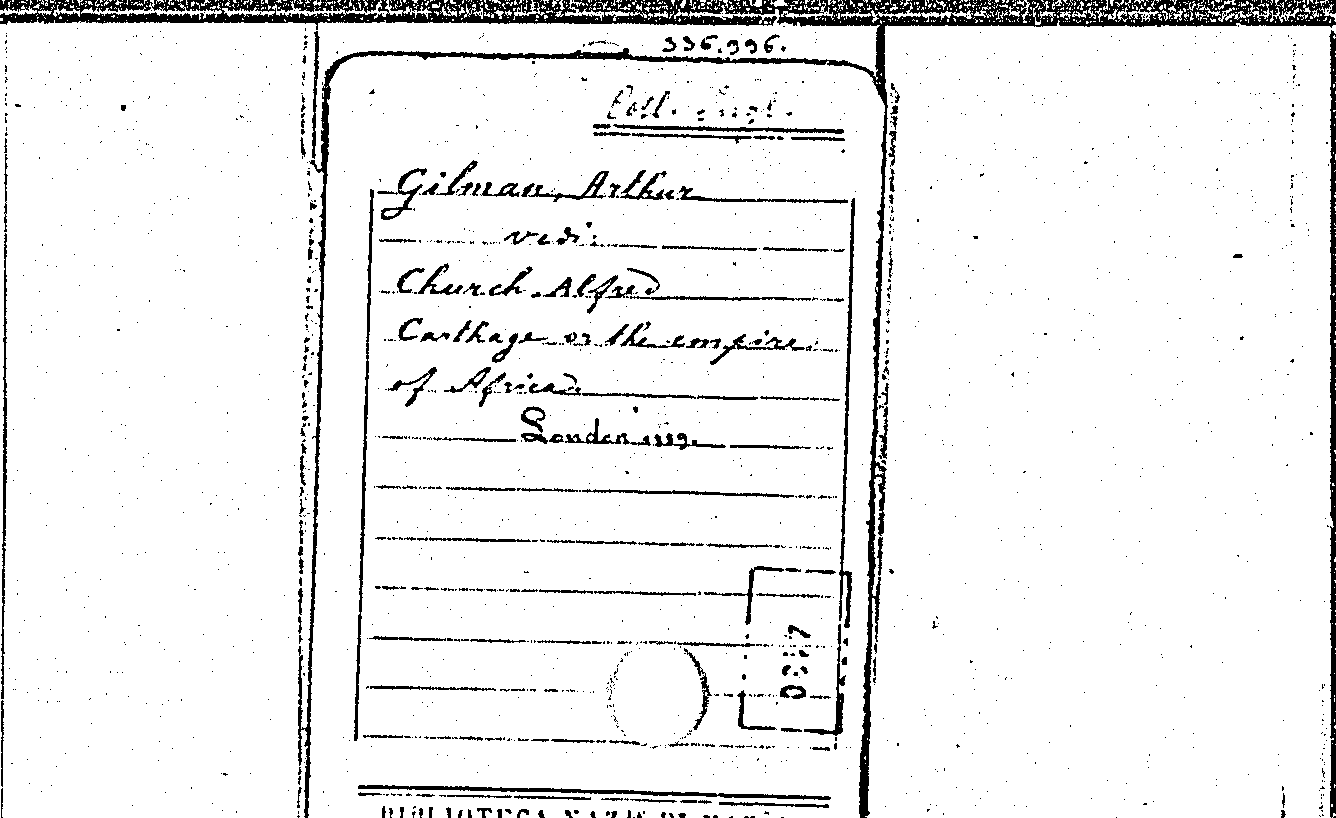 336.996.
Coll. Ingl.
Gilman, Arthur
vedi:
Church, Alfred
Carthage or the empire
of Africa.
London 1889.
BIBLIOTECA NAZ.